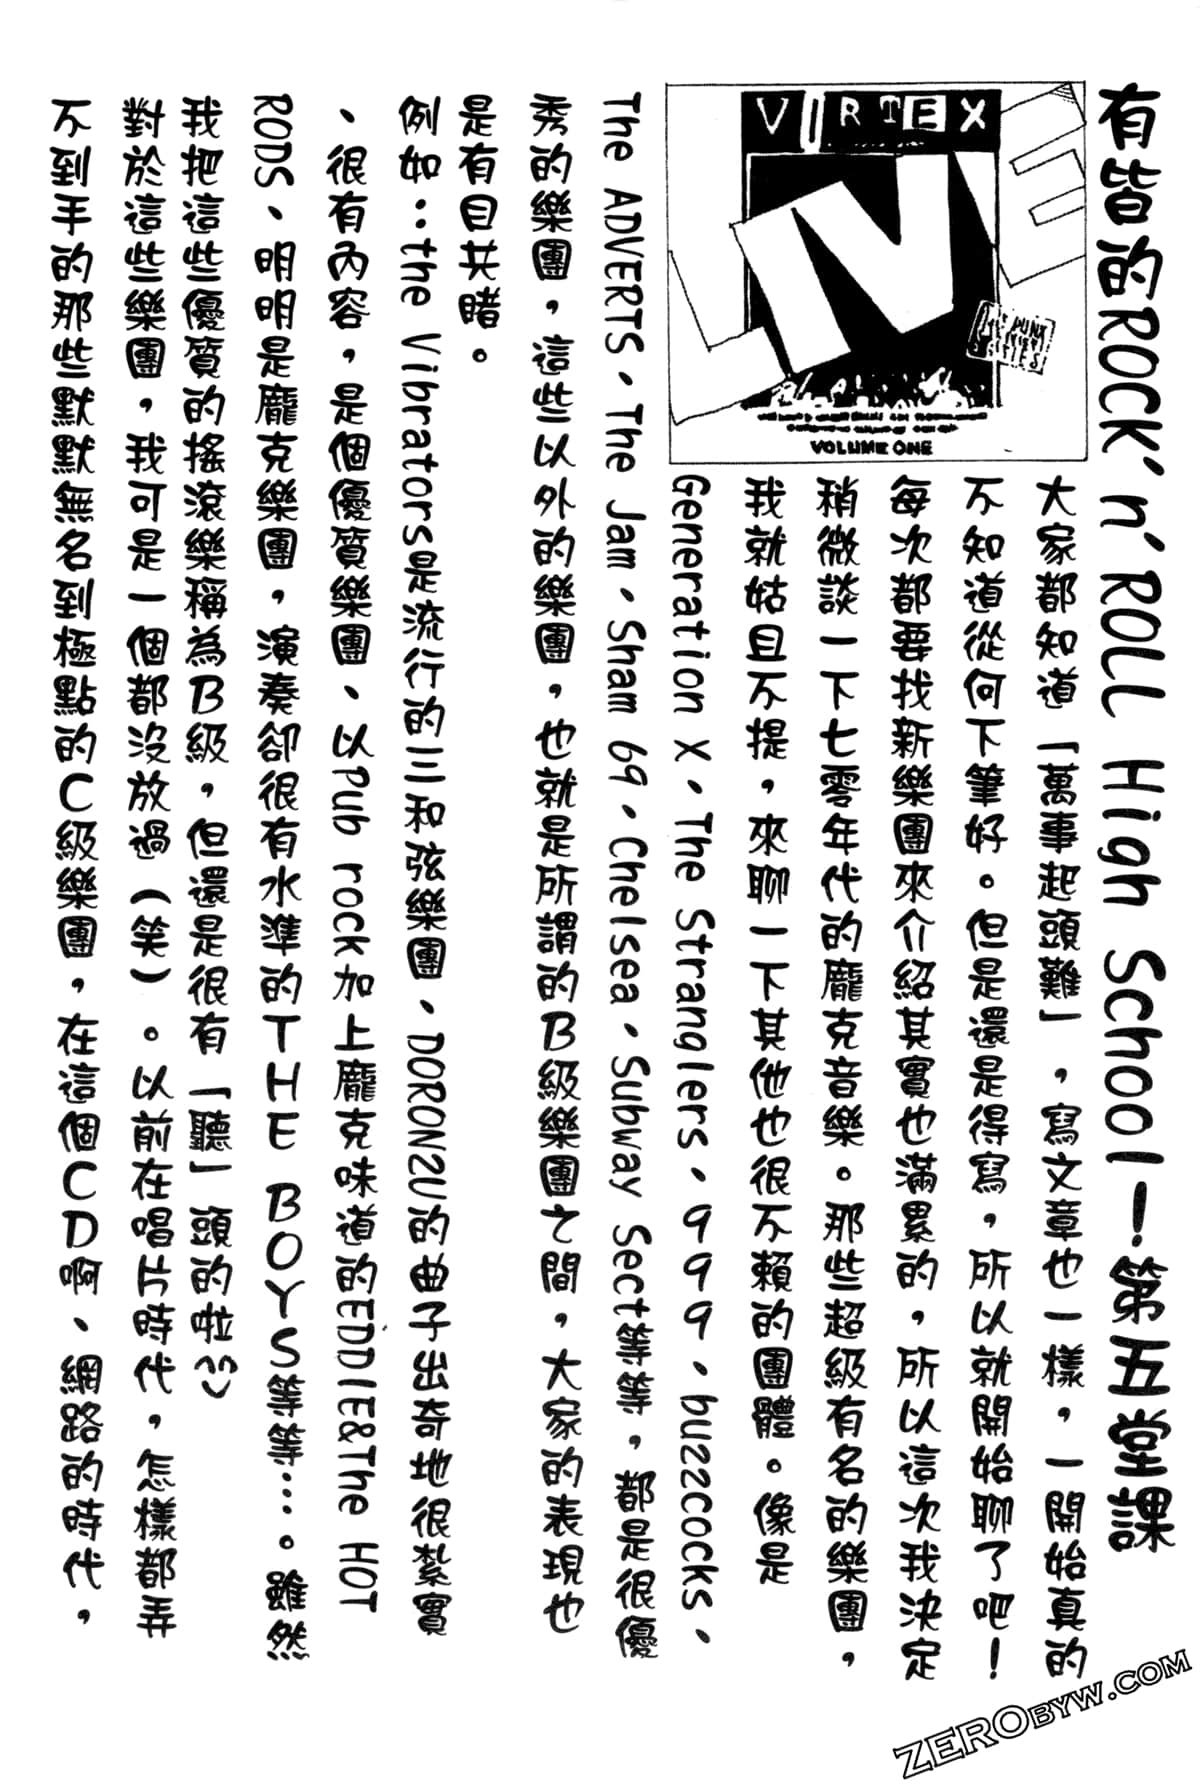 有皆的ROCK'n'ROLL High School!第五堂課
VIRTEX
LIVE
VOLUME ONE
大家都知道「萬事起頭難」,寫文章也一樣,一開始真的
不知道從何下筆好。但是還是得寫,所以就開始聊了吧!
每次都要找新樂團來介紹其實也滿累的,所以這次我決定
稍微談一下七零年代的龐克音樂。那些超級有名的樂團,
我就姑且不提,來聊一下其他也很不賴的團體。像是
Generation X、The Stranglers、999、buzzcocks、
The ADVERTS、The Jam、Sham 69、Chelsea、Subway Sect等等,都是很優
秀的樂團,這些以外的樂團,也就是所謂的B級樂團之間,大家的表現也
是有目共睹。
例如:the Vibrators是流行的三和弦樂團、DORON2U的曲子出奇地很紮實
、很有內容,是個優質樂團、以Pub rock加上龐克味道的EDDIE&The HOT
RODS、明明是龐克樂團,演奏卻很有水準的THE BOYS等等…。雖然
我把這些優質的搖滾樂稱為B級,但還是很有「聽」頭的啦^^
對於這些樂團,我可是一個都沒放過(笑)。以前在唱片時代,怎樣都弄
不到手的那些默默無名到極點的C級樂團,在這個CD啊、網路的時代,
ZEROBYW.COM